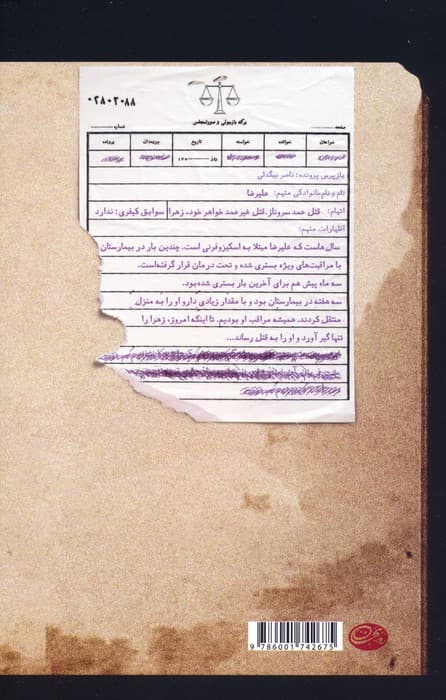 ۰۲۸۰۲۰۸۸
برگه بازجوئی و صورتمجلس
صفحه شماره
خواهان خوانده خواسته تاریخ جزوه‌دان پرونده
روز
بازپرس پرونده: ناصر بیگدلی
نام و نام خانوادگی متهم: علیرضا
اتهام: قتل عمد سروناز، قتل غیرعمد خواهر خود، زهرا سوابق کیفری: ندارد
اظهارات متهم:
سال هاست که علیرضا مبتلا به اسکیزوفرنی است. چندین بار در بیمارستان
با مراقبت‌های ویژه بستری شده و تحت درمان قرار گرفته‌است.
سه ماه پیش هم برای آخرین بار بستری شده‌بود.
سه هفته در بیمارستان بود و با مقدار زیادی دارو او را به منزل
منتقل کردند. همیشه مراقب او بودیم. تا اینکه امروز، زهرا را
تنها گیر آورد و او را به قتل رساند...
9 786001 742675